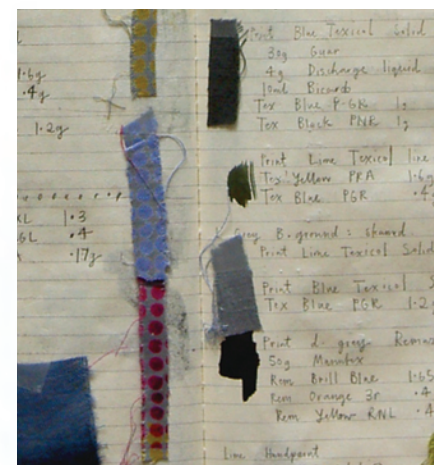 1.6g
.4g
1.2g
XL 1.3
GL .4
.17g
Print Blue Toxical Solid
30g Guar
4g Discharge liquid
10ml Bicarb
Tox Blue P-GR 1g
Tox Black PNR 1g
Print Lime Toxical line
Tox Yellow PRA 1.6g
Tox Blue PGR .4
Grey B.ground : shared
Print Lime Toxical Solid
Print Blue Toxical S
Tox Blue PGR 1.2g
Print d. grey Remaz
50g Manutex
Rem Brill Blue 1.65
Rem Orange 3r .4
Rem Yellow RNL .4
Lime Handpaint